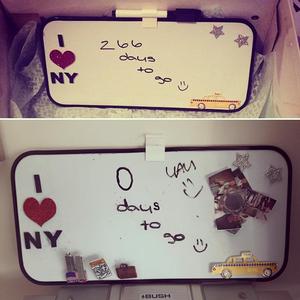 I
NY
266
days
to
go
I
NY
0
YAY
days
to
go
BUSH